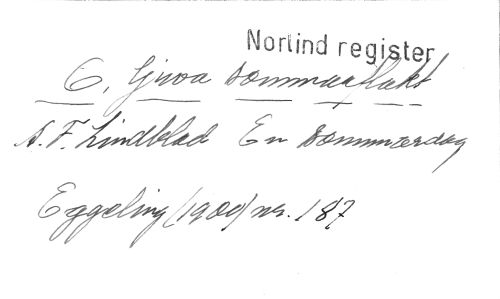 Norlind register
O, ljuva Sommarfläkt
A. F. Lindblad En Sommardag
Eggeling (1909) nr. 187